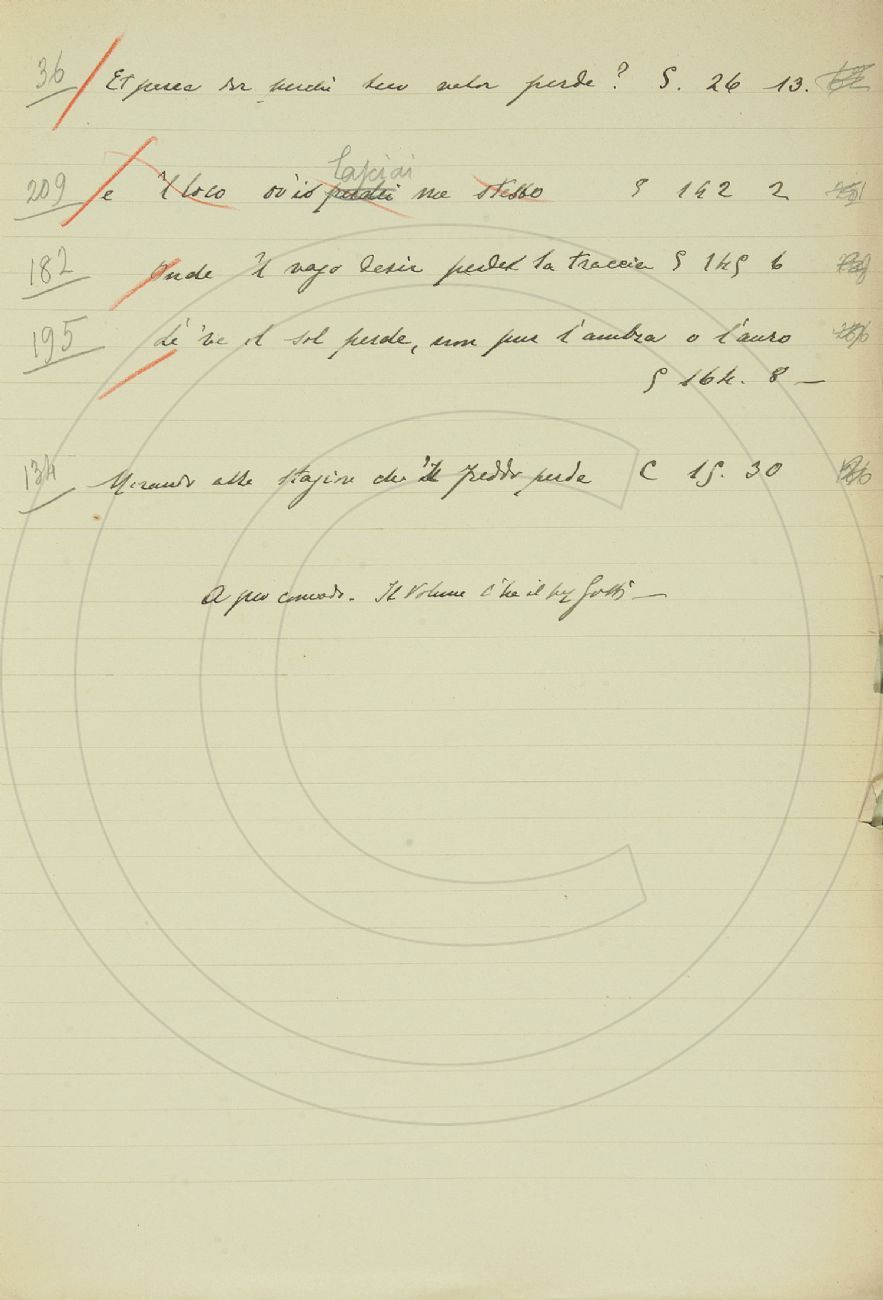 36 Et perea dir perché seco valor perde? S. 26 13.
lasciai
209 e 'l loco ov'io perdei me stesso S 142 2
182 Onde 'l vago desir perde la traccia S 145 6
195 Sí 've il sol perde, non pur l'ambra o l'auro
S 164. 8 —
134 Mirando alla stagion che 'l freddo perde C 15. 30
A suo comodo. Il Volume l'ha il